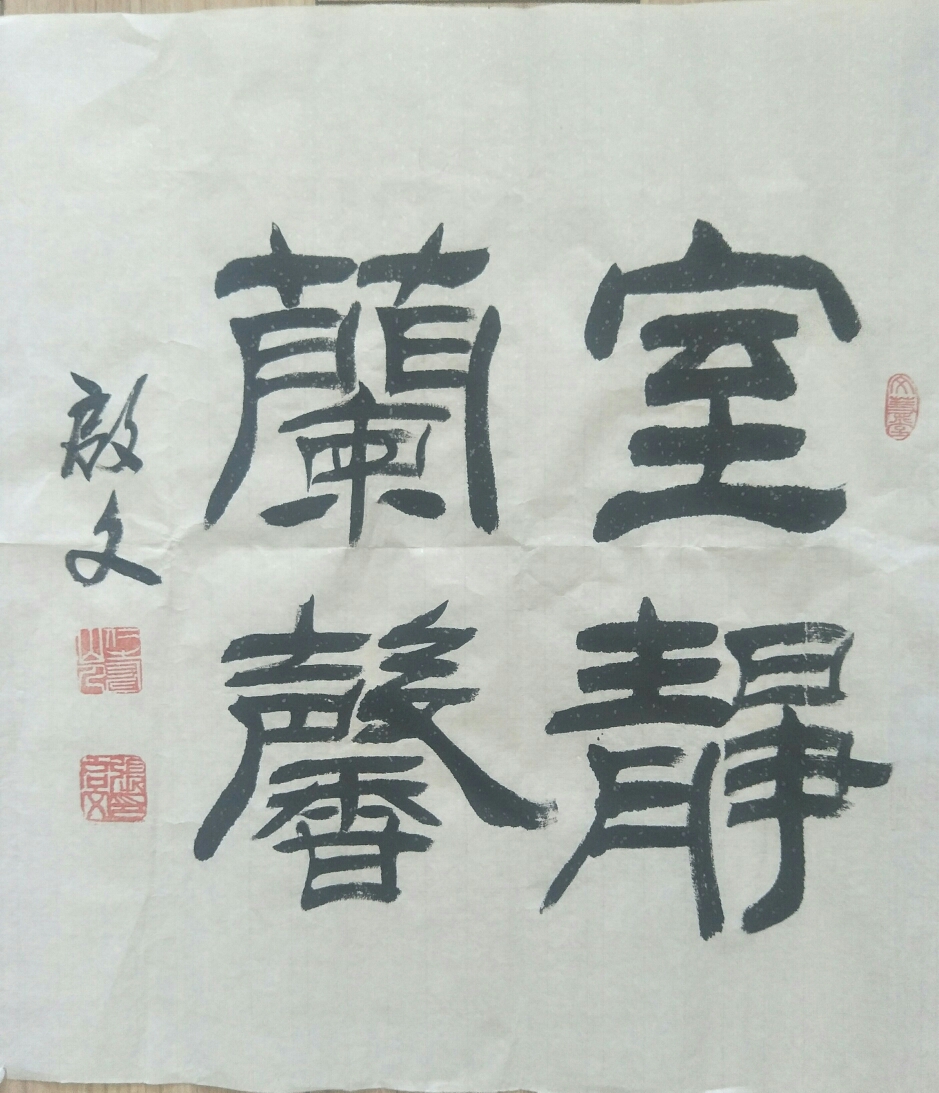 室靜
蘭馨
啟文